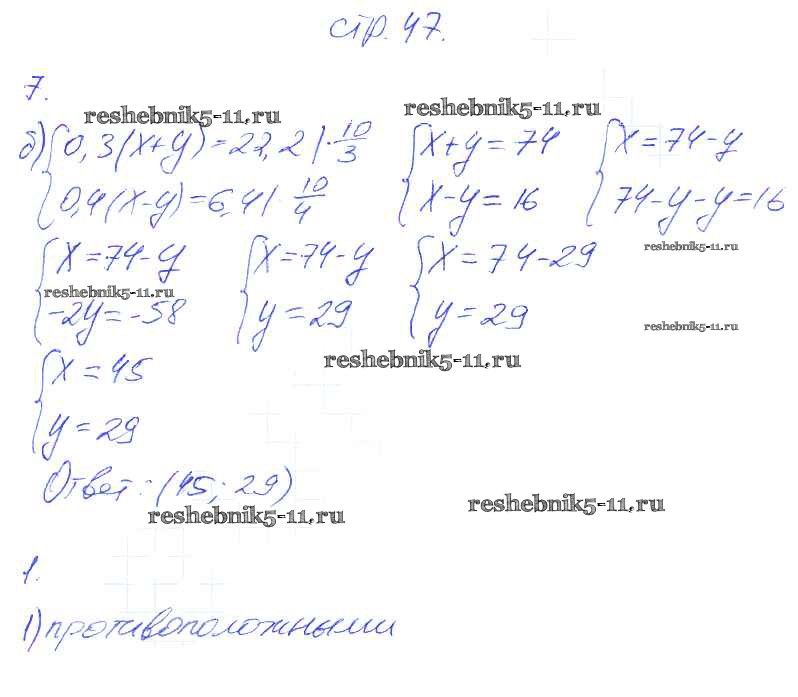 стр. 47.
7.
reshebnik5-11.ru
reshebnik5-11.ru
б) { 0,3(x+y)=22,2 | · 10/3
{ x+y=74
{ x=74-y
0,4(x-y)=6,4 | · 10/4
x-y=16
74-y-y=16
reshebnik5-11.ru
{ x=74-y
{ x=74-y
{ x=74-29
reshebnik5-11.ru
-2y=-58
y=29
y=29
reshebnik5-11.ru
reshebnik5-11.ru
{ x=45
y=29
Ответ: (45; 29)
reshebnik5-11.ru
reshebnik5-11.ru
1.
1) противоположными